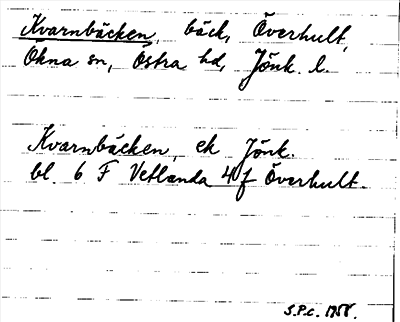 Kvarnbäcken, bäck, Överhult,
Ökna sn, Östra hd, Jönk. l.
Kvarnbäcken, ek Jönk.
bl. 6 F Vetlanda 4 f Överhult.
S.P.c. 1958.